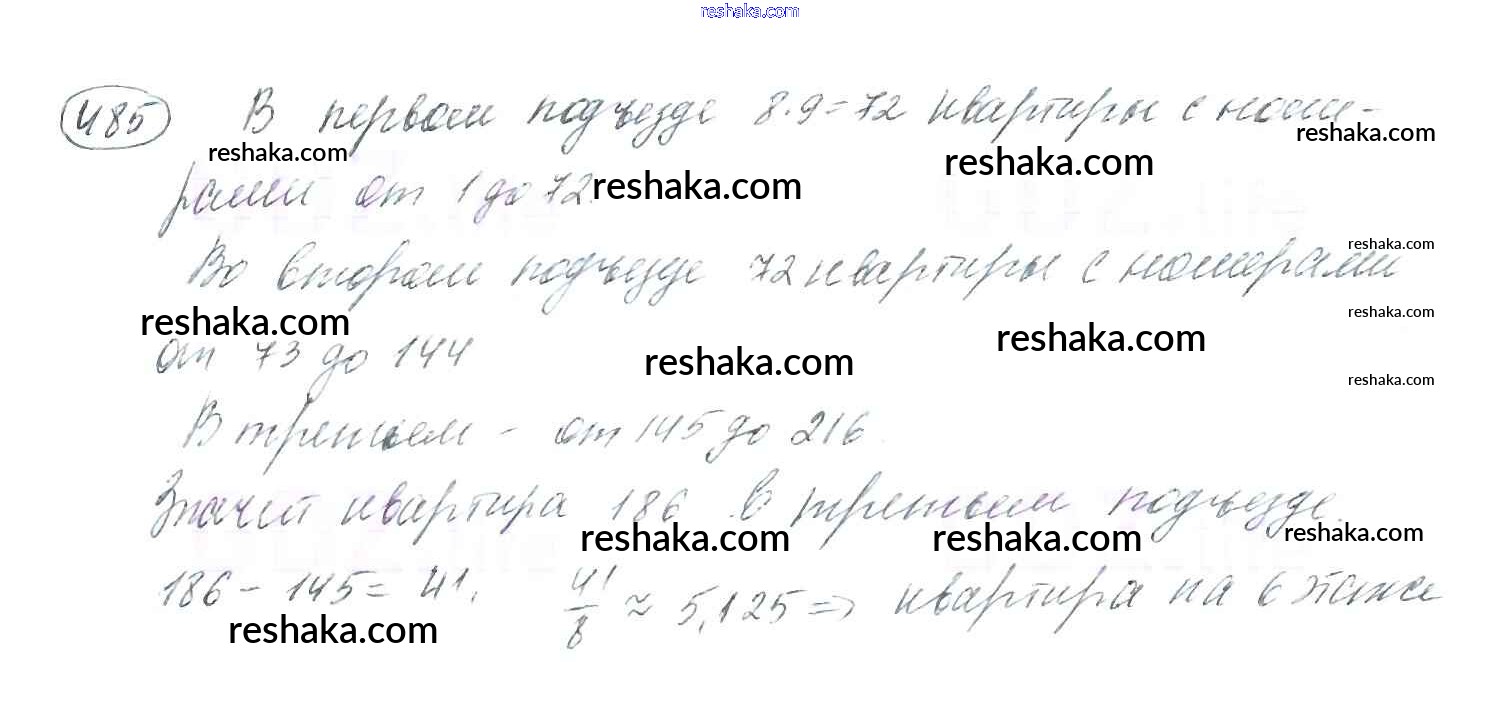 reshaka.com
485 В первом подъезде 8·9=72 квартиры с номе-
reshaka.com reshaka.com reshaka.com
рами от 1 до 72. reshaka.com
Во втором подъезде 72 квартиры с номерами reshaka.com
reshaka.com reshaka.com reshaka.com
от 73 до 144 reshaka.com
reshaka.com
В третьем - от 145 до 216.
Значит квартира 186 в третьем подъезде.
reshaka.com reshaka.com reshaka.com
186 - 145 = 41. 41/8 ≈ 5,125 => квартира на 6 этаже
reshaka.com